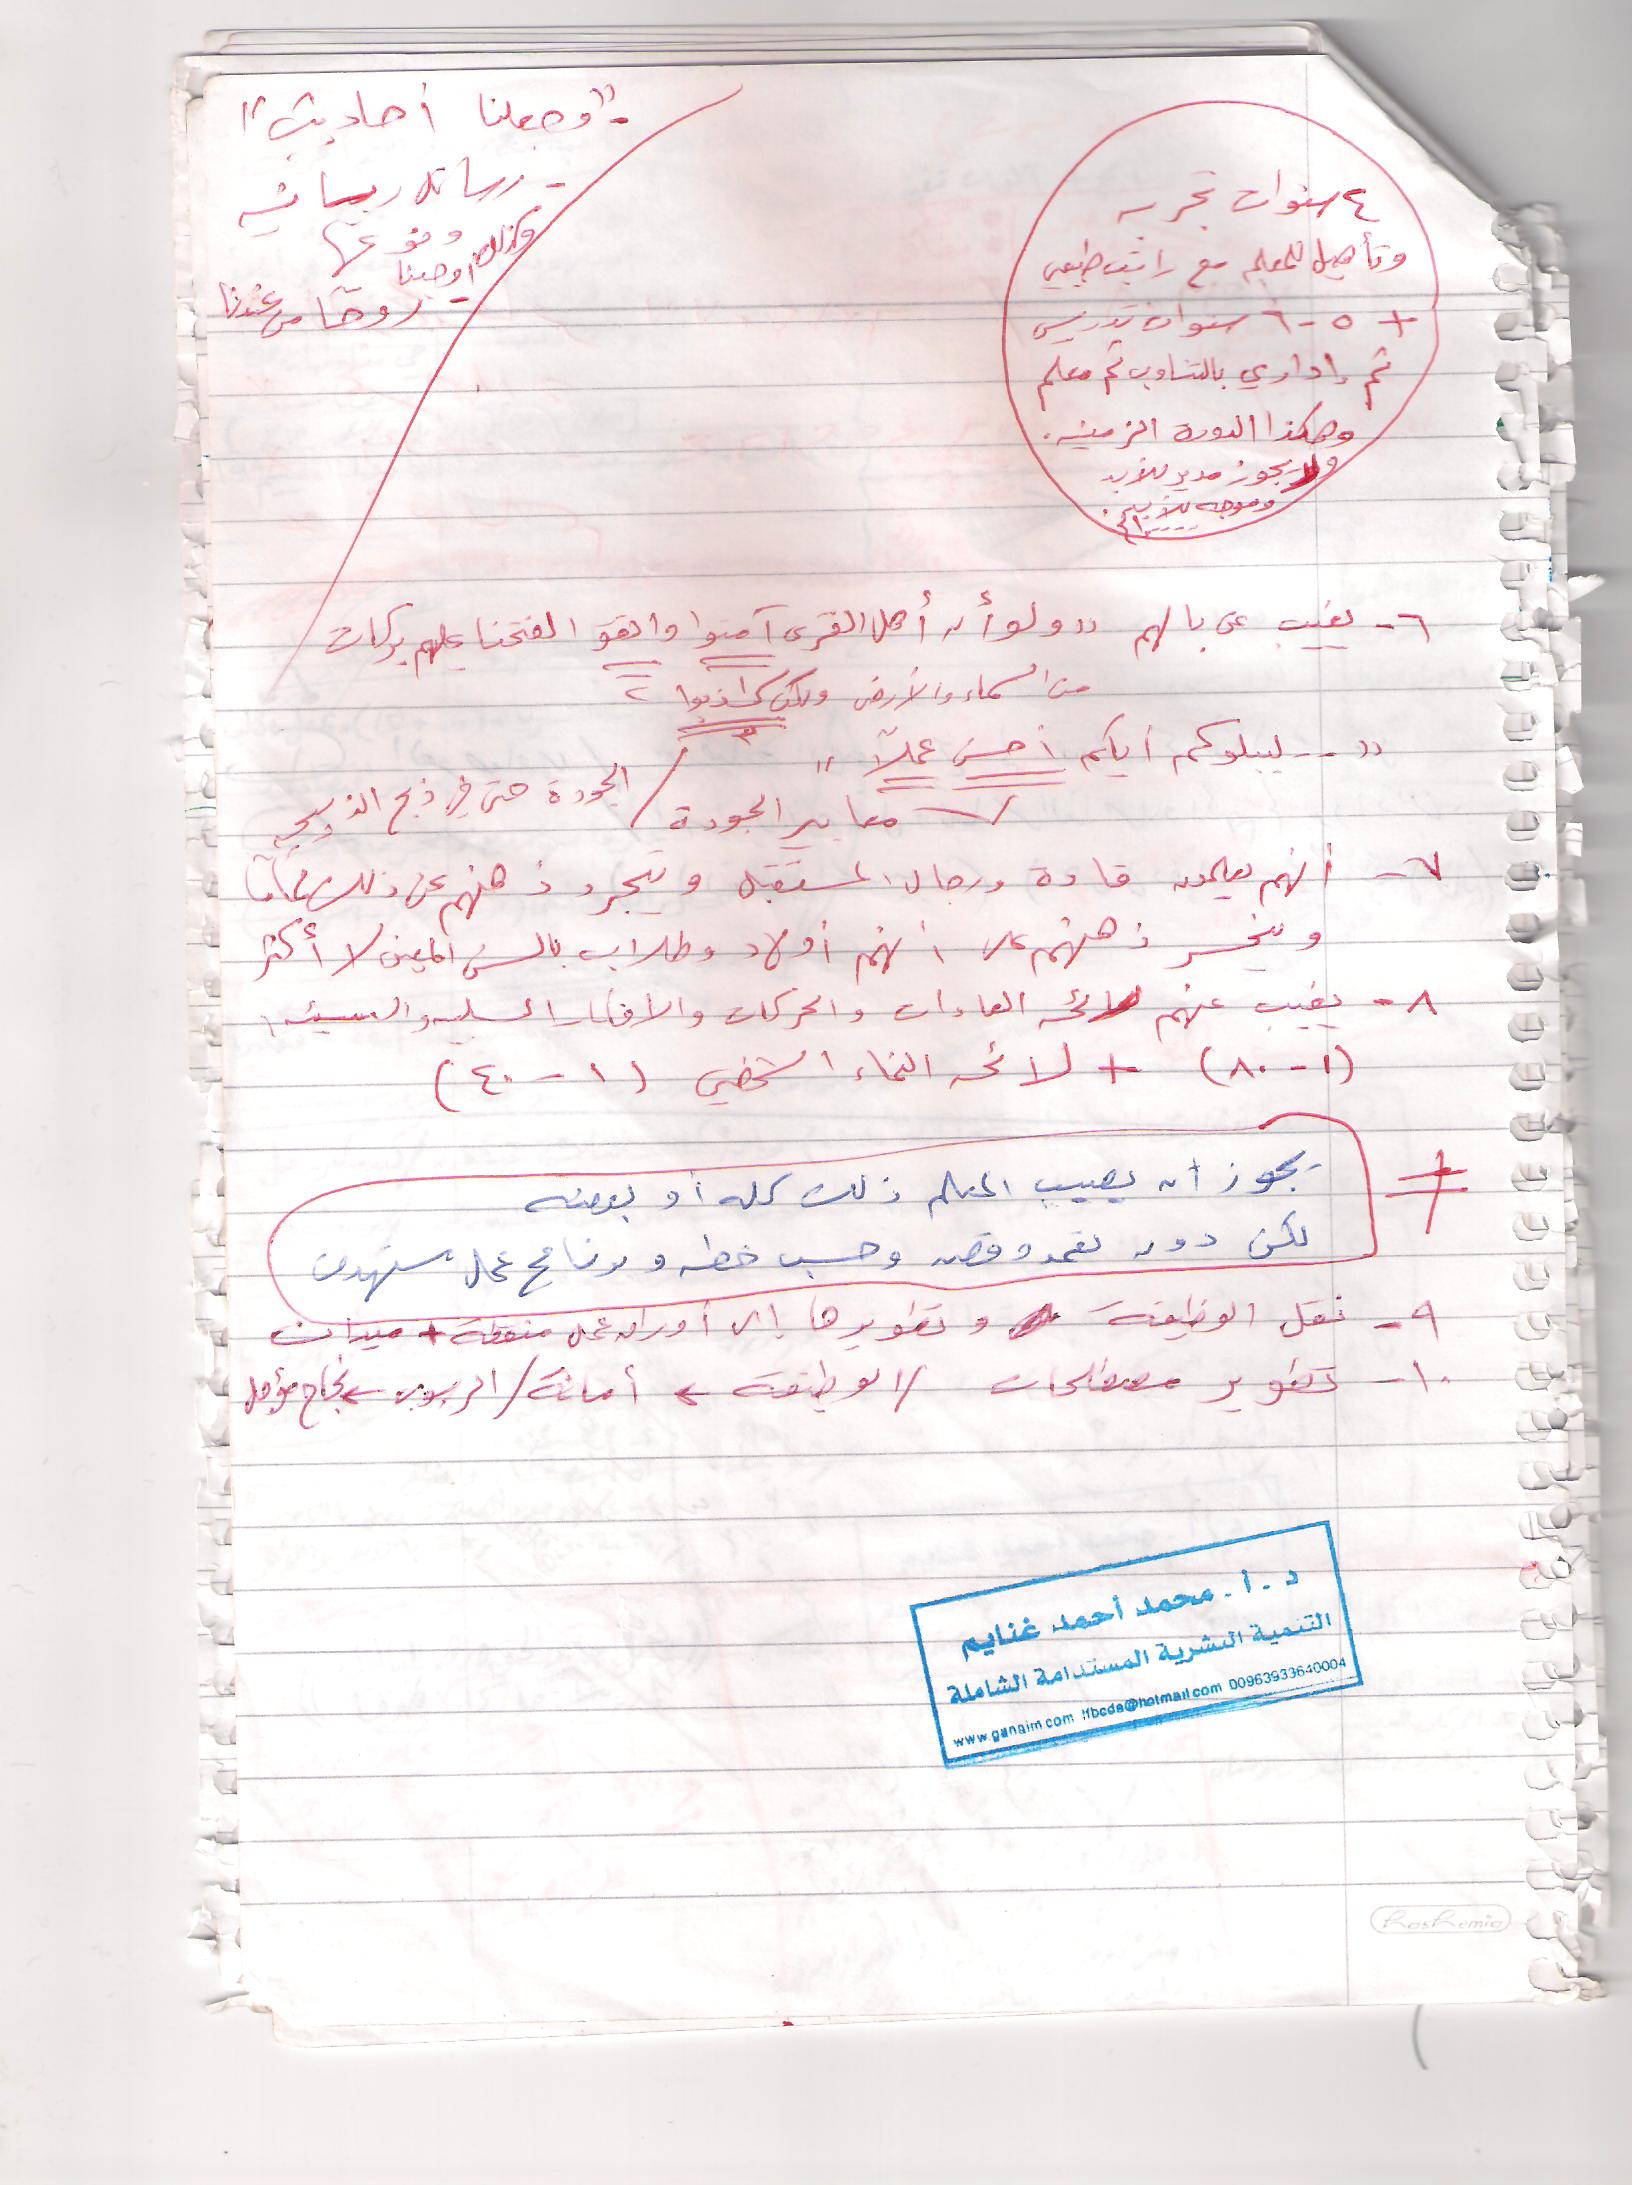 "وجعلنا أحاديث"
- رسائل ربانية
ونوعها
وكذلك أوحينا
روحًا من عندنا
٤ سنوات تجربه
وتأهيل للمعلم مع راتب طبيعي
+ ٥ - ٦ سنوات تدريس
ثم إداري بالتناوب ثم معلم
وهكذا الدورة الزمنيه.
ولا يجوز مدير للأبد
وموجه للأبد.
٦- يغيب عن بالهم "ولو أن أهل القرى آمنوا واتقو لفتحنا عليهم بركات
من السماء والأرض ولكن كذبوا"
".... ليبلوكم أيكم أحسن عملاً"
معايير الجودة / الجودة حتى في ذبح الذبيحه
٧- أنهم يعلمون قادة ورجال المستقبل ويتجرد ذهنهم عن ذلك تمامًا
وينحسر ذهنهم على أنهم أولاد وطلاب بالسن المعين لا أكثر
٨- يغيب عنهم لائحه العادات والحركات والافكار السلبيه والسيئه
(١ - ٨٠) + لائحه النماء الشخصي (١ - ٤٠)
يجوز أن يصيب المعلم ذلك كله أو بعضه
لكن دون تعمد وقصد وحسب خطه وبرنامج عمل مستهدف
٩- نقل الوظيفة وتطويرها إلى أوراق عمل منوعة + ميدان
١٠- تطوير مصطلحات / الوظيفة ← أمانة / الرسوب ← نجاح مؤجل
د. ا. محمد أحمد غنايم
التنمية البشرية المستدامة الشاملة
www.ganaim.com ifbcda@hotmail.com 00963933640004
hashemia